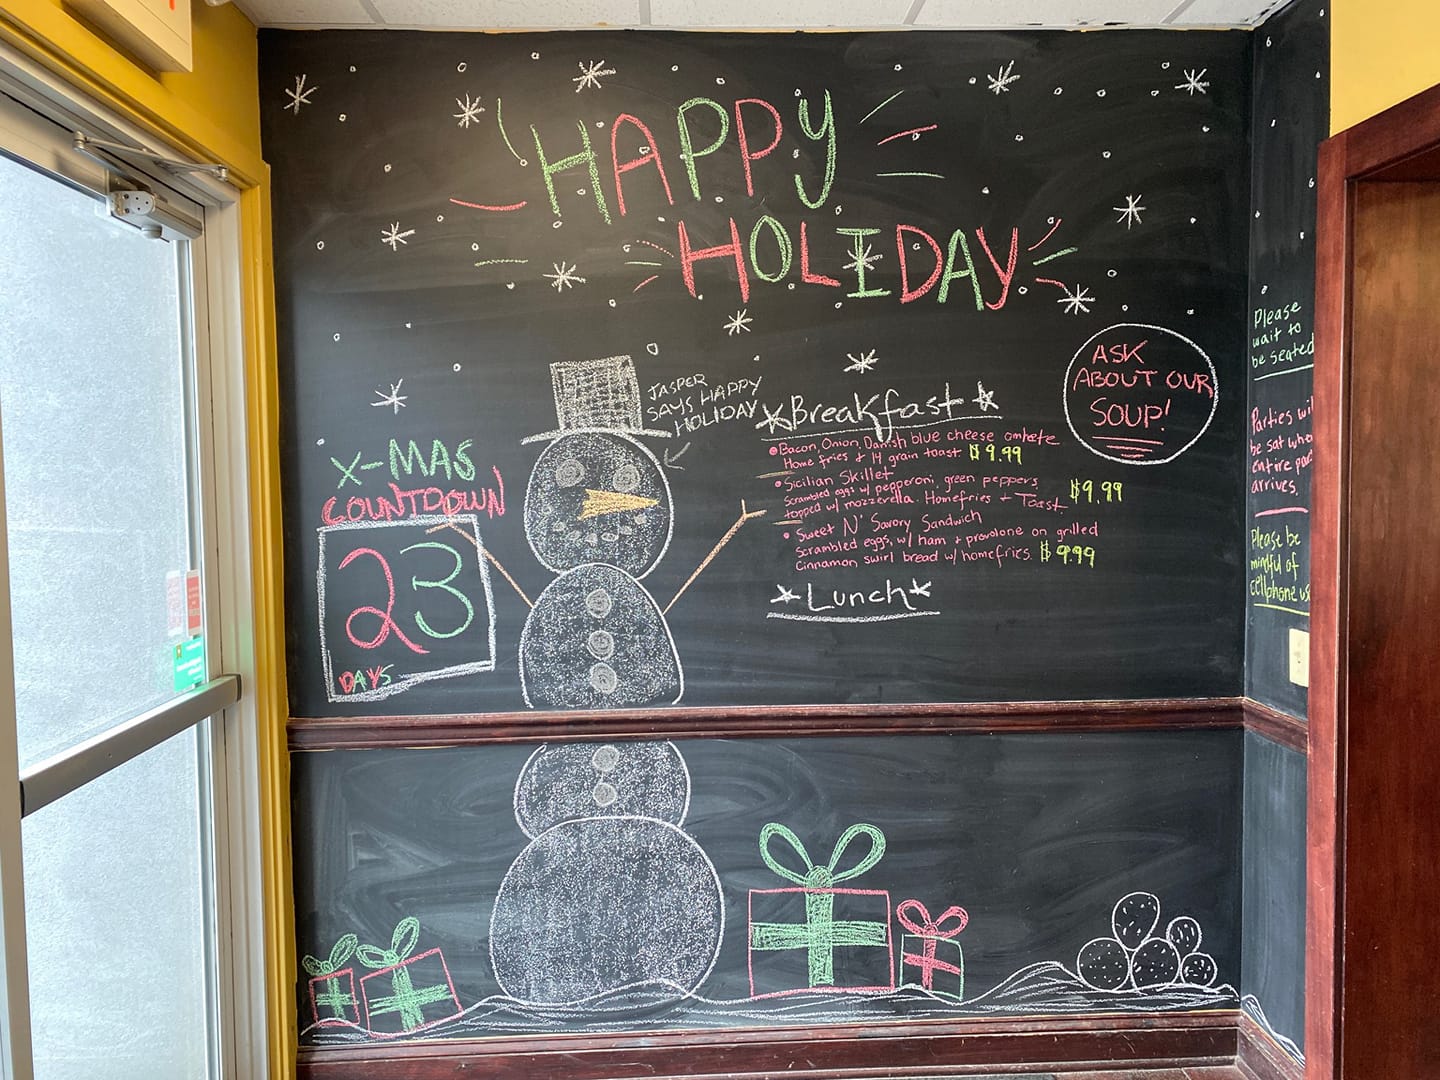 HAPPY
HOLIDAY
JASPER
SAYS HAPPY
HOLIDAY
X-MAS
COUNTDOWN
23
DAYS
*Breakfast*
Bacon, Onion, Danish blue cheese omlete
Home fries + 14 grain toast $9.99
Sicilian Skillet
Scrambled eggs w/ pepperoni, green peppers
topped w/ mozzerella. Homefries + Toast $9.99
Sweet N' Savory Sandwich
Scrambled eggs, w/ ham + provolone on grilled
Cinnamon swirl bread w/ homefries. $9.99
*Lunch*
ASK
ABOUT OUR
SOUP!
Please
wait to
be seated
Parties wil
be sat when
entire par
arrives.
Please be
mindful of
cellphone us